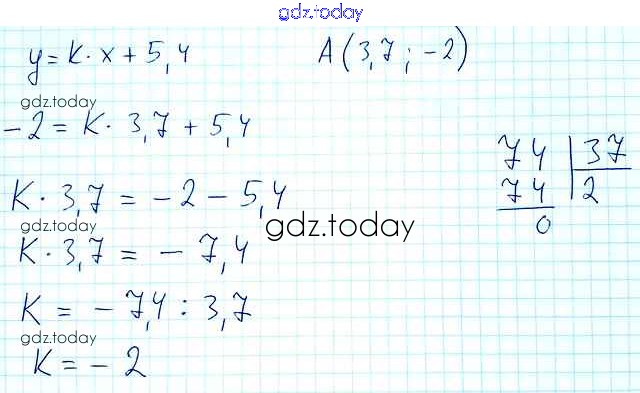 gdz.today
y = k · x + 5,4 A (3,7 ; -2)
gdz.today
-2 = k · 3,7 + 5,4
74 | 37
k · 3,7 = -2 - 5,4
74 | 2
gdz.today
gdz.today
0
k · 3,7 = - 7,4
k = - 7,4 : 3,7
gdz.today
k = - 2